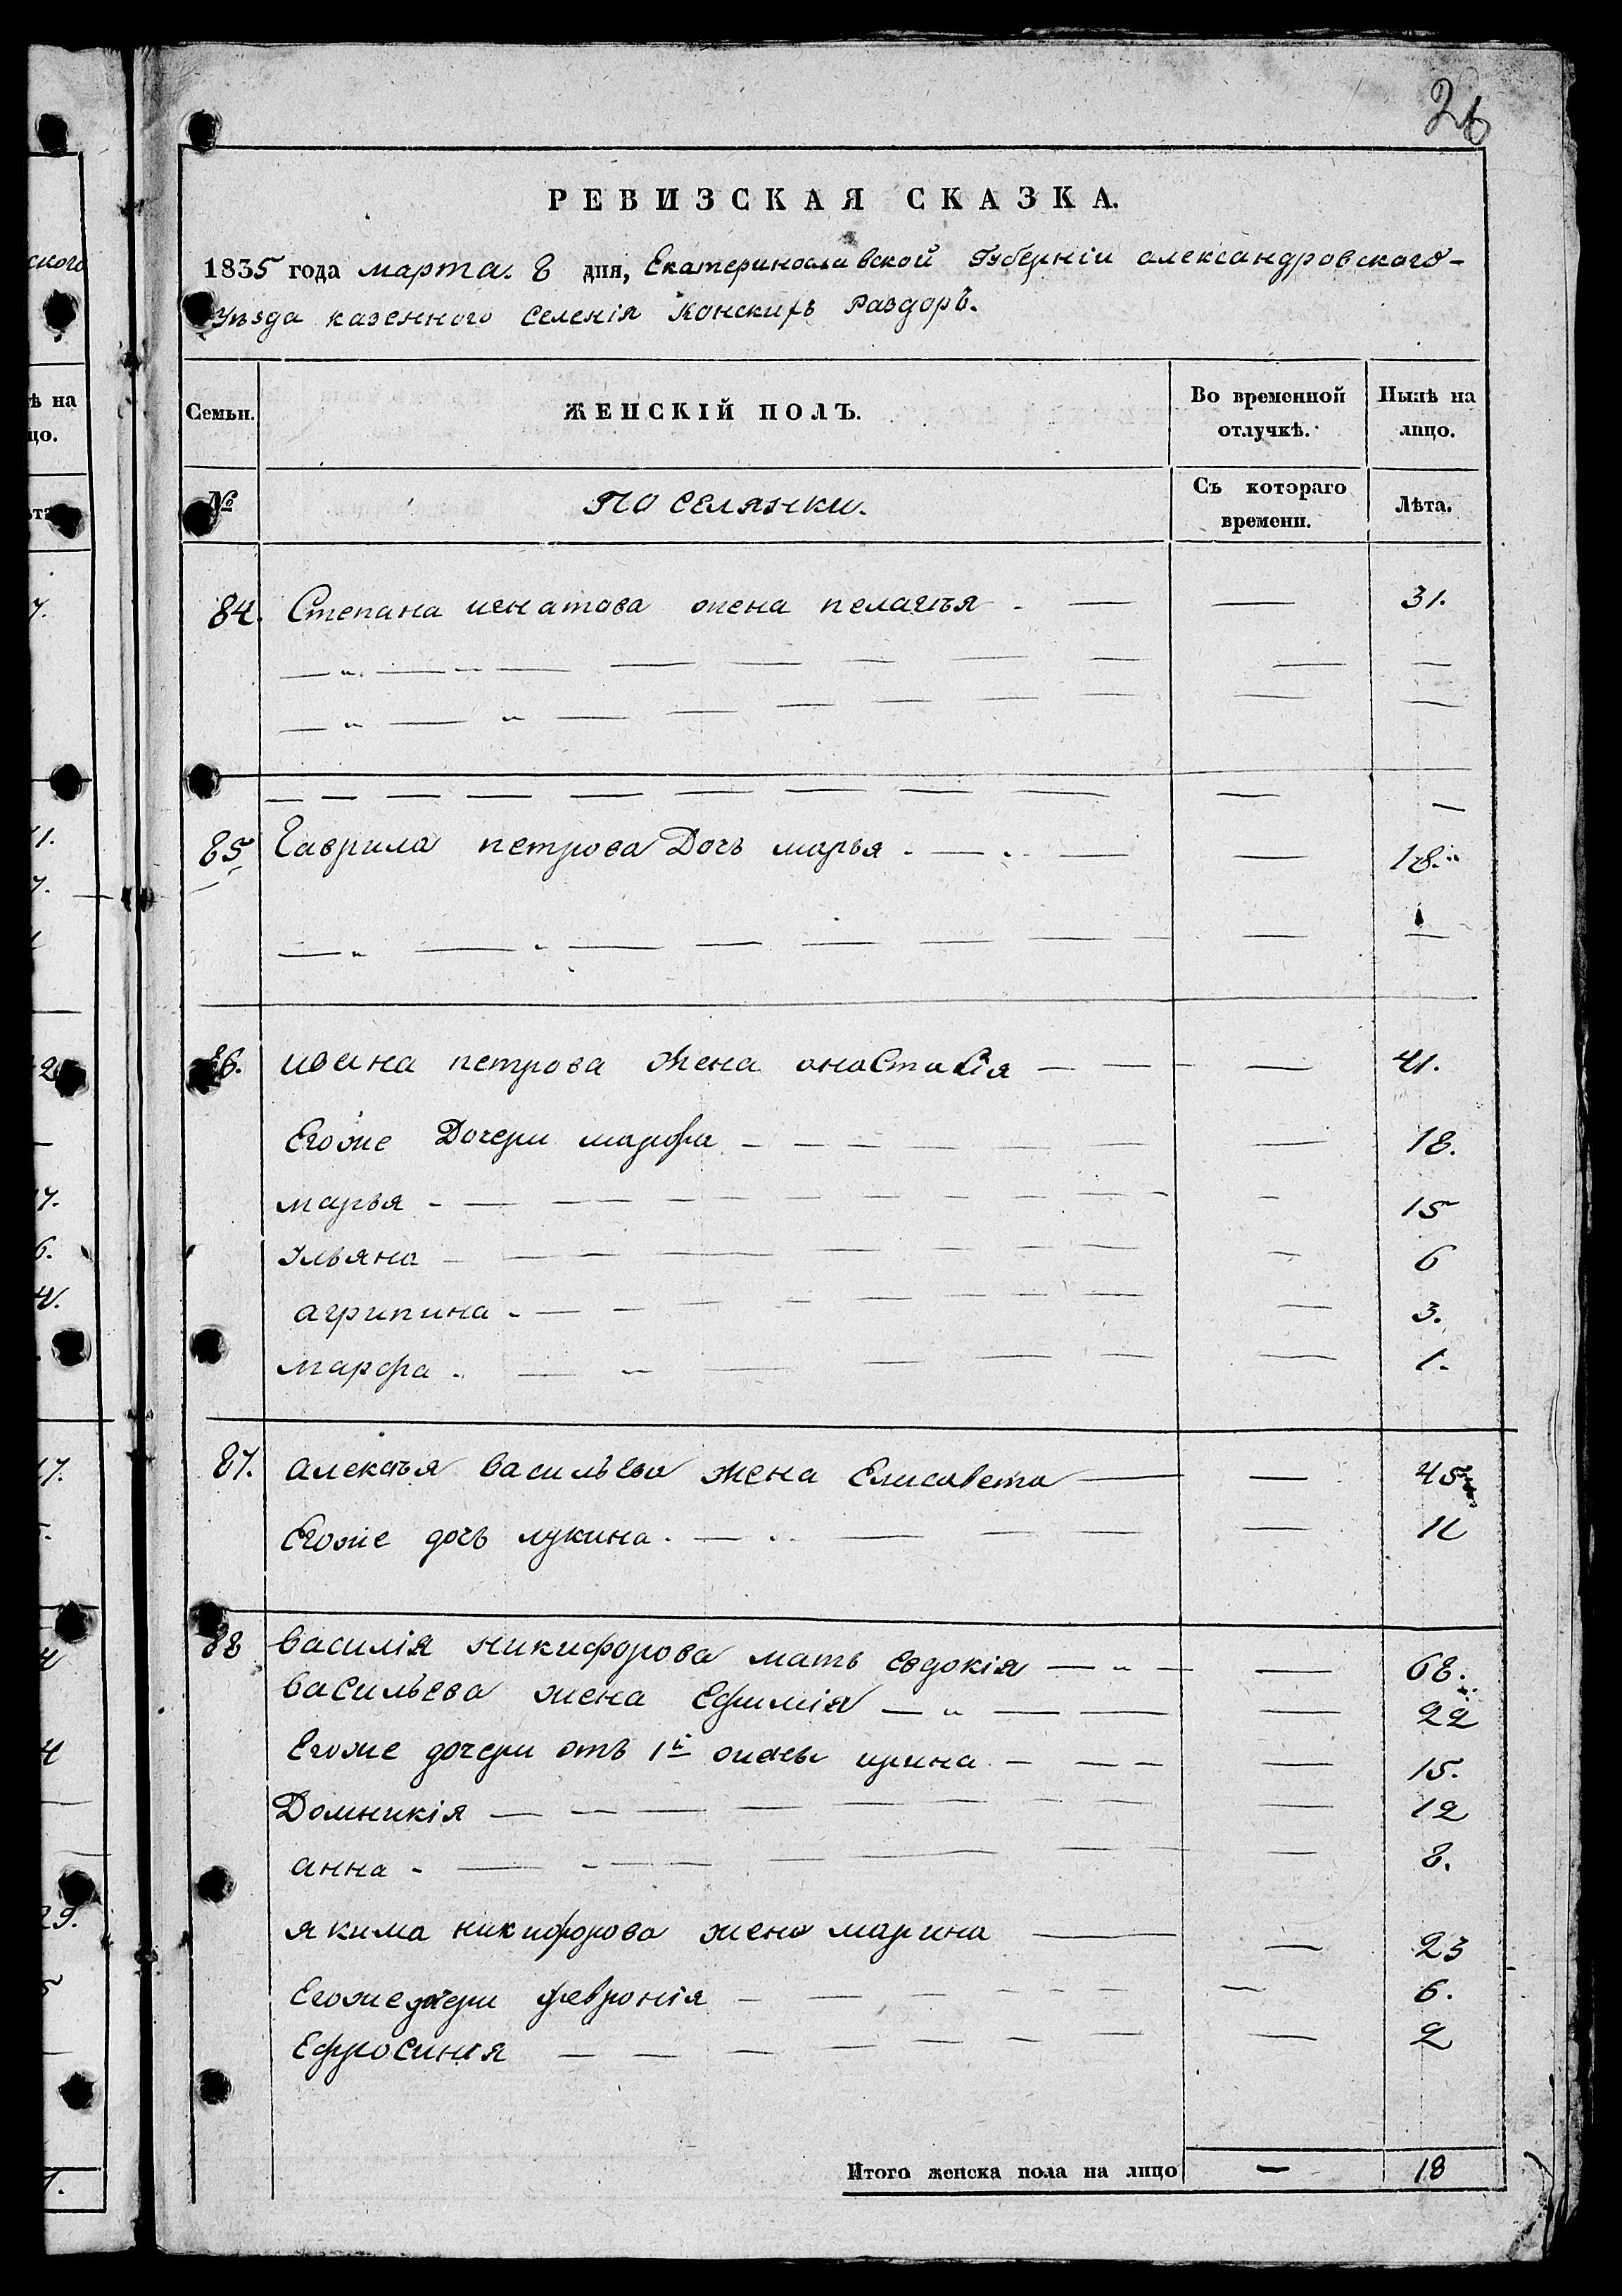 26
РЕВИЗСКАЯ СКАЗКА.
1835 года марта. 8 дня, Екатеринославской Губерніи александровского-
Уѣзда казенного Селенія Конскихъ Раздоръ.
Семьи. ЖЕНСКІЙ ПОЛЪ. Во временной отлучкѣ. Нынѣ на лицо.
№ поселянки. Съ котораго времени. Лѣта.
84. Степана игнатова жена пелагѣя — — 31.
85 Гаврила петрова Дочь марья — — 18.
86. ивана петрова Жена анастасія — — 41.
Егоже Дочери марфа — — 18.
марья — — 15
Ульяна — — 6
агрипина — — 3.
марфа — — 1.
87. алексѣя васильева жена Елисавета — — 45
Егоже дочь лукина — — 11
88 василія никифорова мать евдокія — — 68.
васильева жена Ефимія — — 22
Егоже дочери отъ 1й жены ирина — — 15.
Домникія — — 12
анна — — 8.
якима никифорова жена марина — — 23
Егоже дочери февронія — — 6.
Ефросинія — — 2
Итого женска пола на лицо — 18